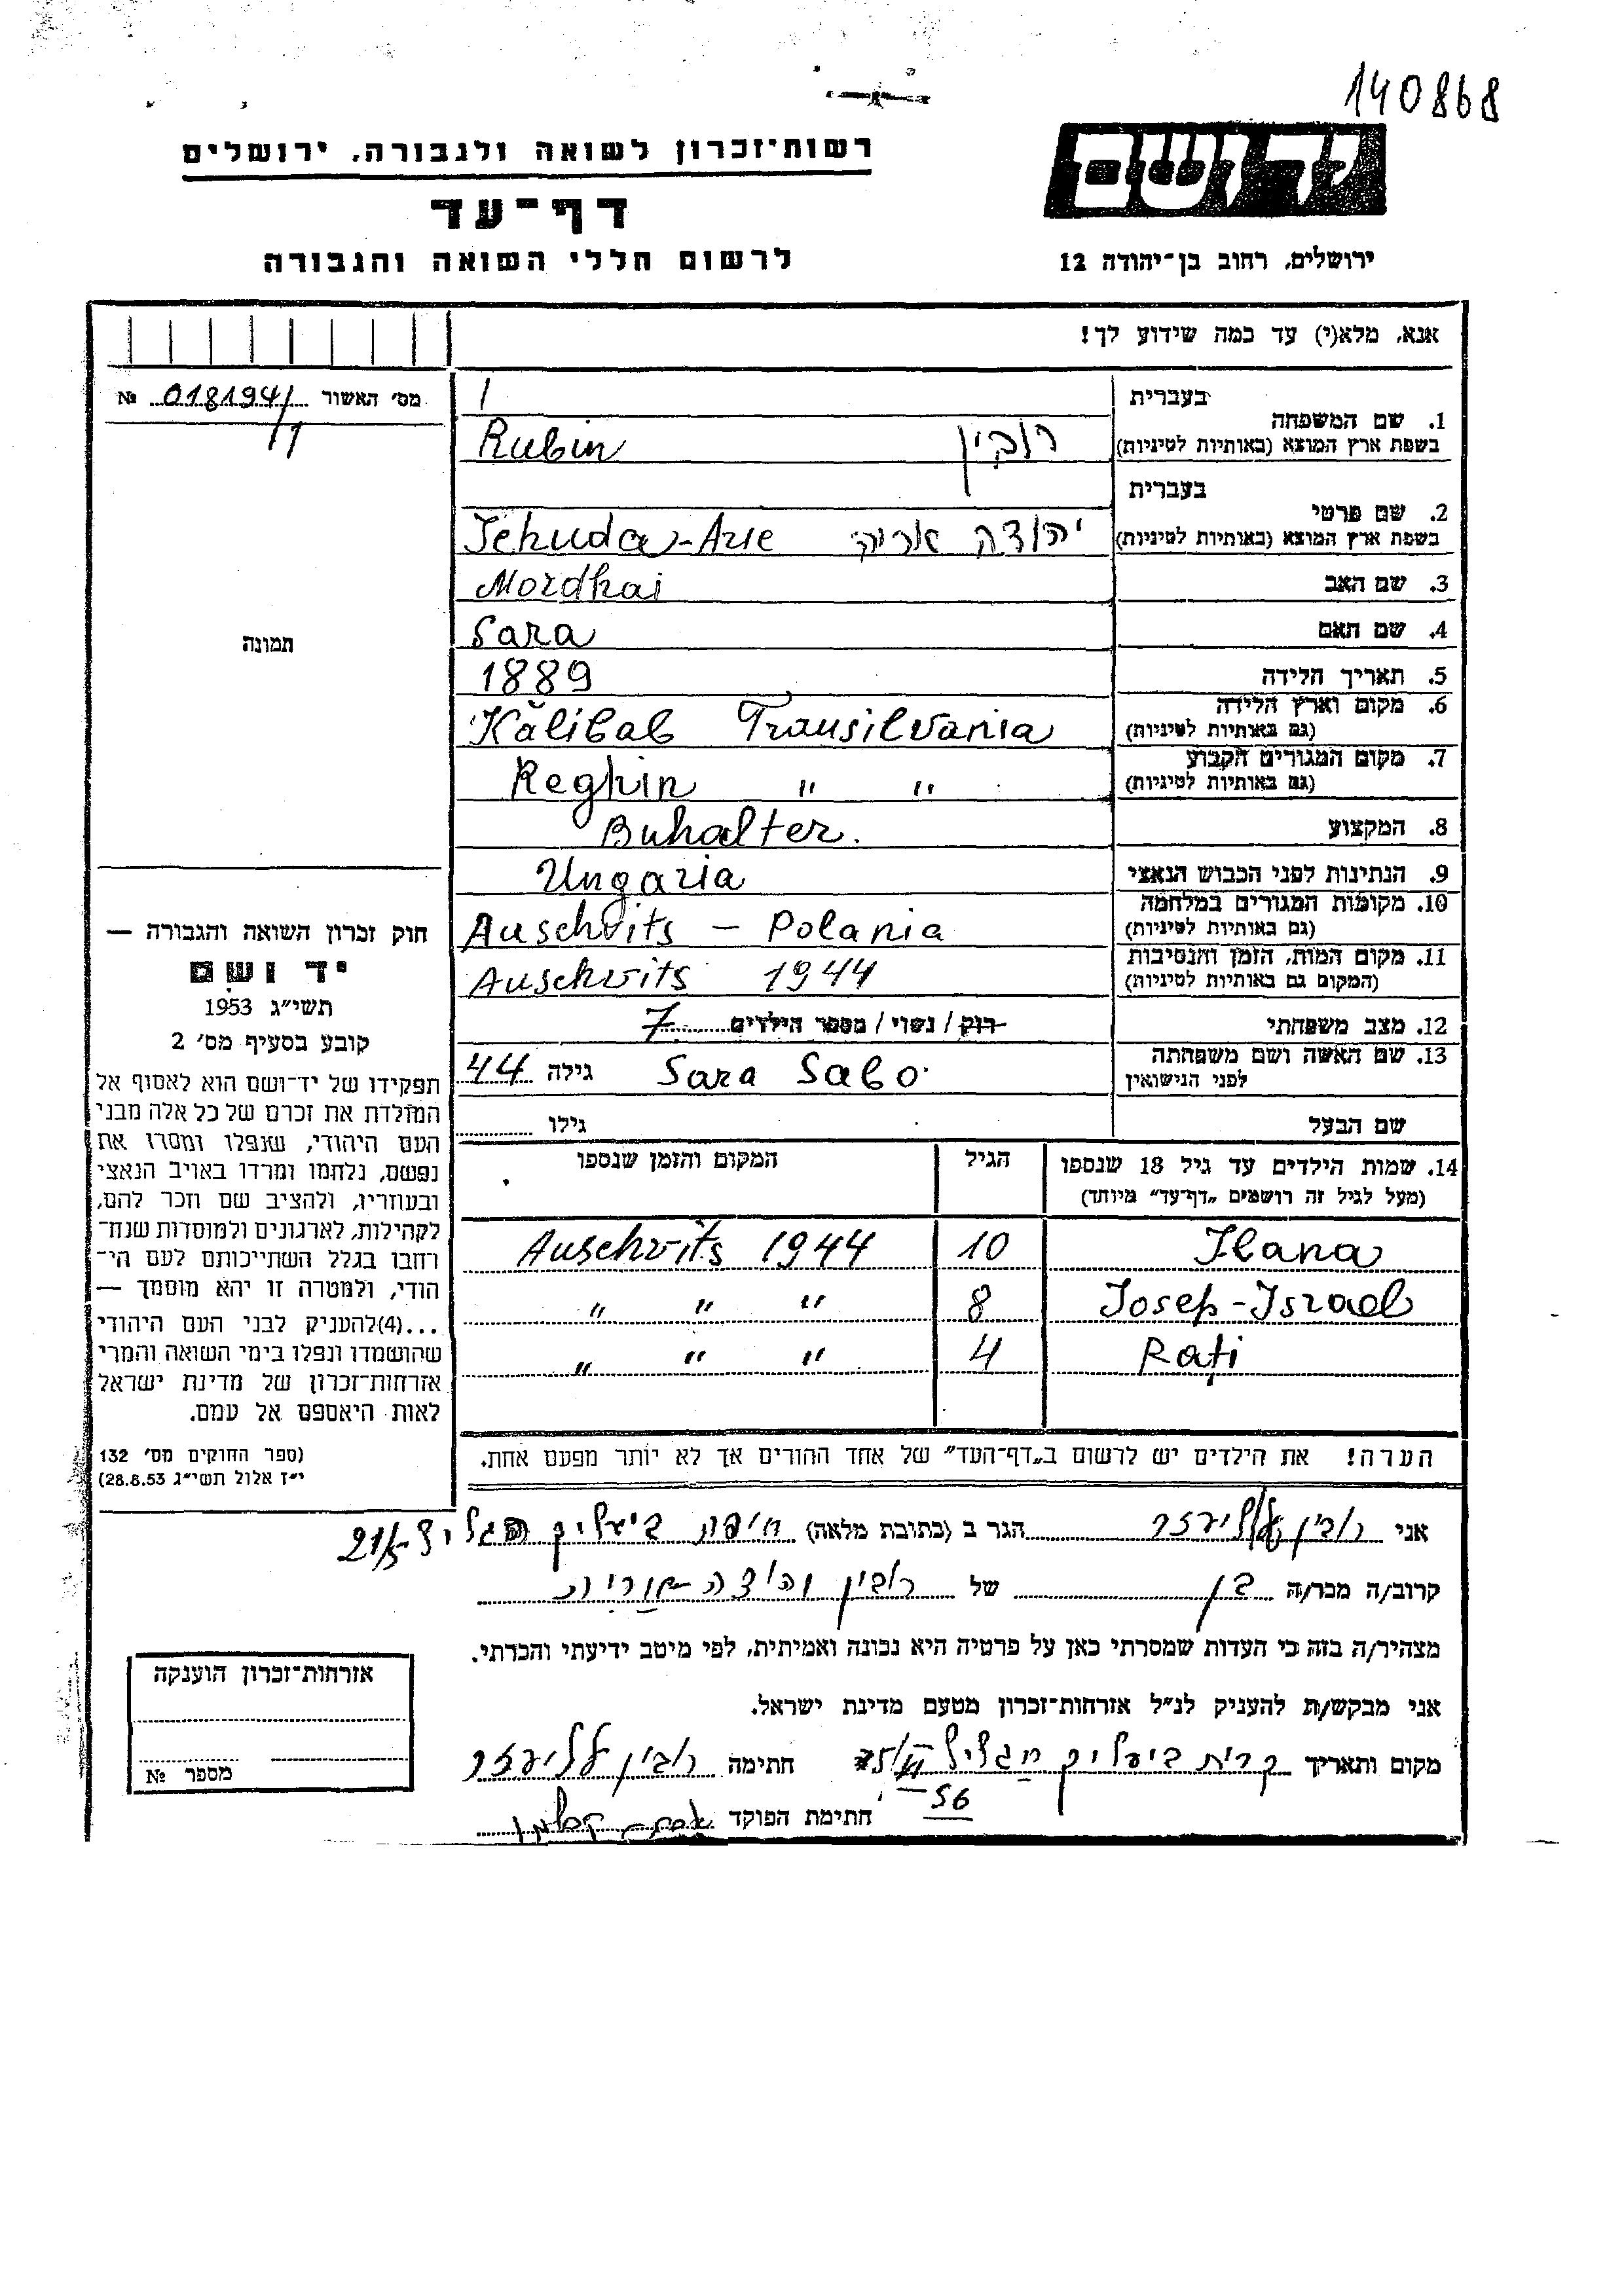 140868
יד ושם
רשות־זכרון לשואה ולגבורה, ירושלים
דף־עד
ירושלים, רחוב בן־יהודה 12
לרשום חללי השואה והגבורה
אנא, מלא(י) עד כמה שידוע לך!
מס׳ האשור 018194/1 №
1. שם המשפחה
בעברית
בשפת ארץ המוצא (באותיות לטיניות)
רובין Rubin
2. שם פרטי
בעברית
בשפת ארץ המוצא (באותיות לטיניות)
יהודה אריה Jehuda-Arie
3. שם האב Mordhai
4. שם האם Sara
5. תאריך הלידה 1889
6. מקום וארץ הלידה
(גם באותיות לטיניות)
Transilvania
7. מקום המגורים הקבוע
(גם באותיות לטיניות)
Reghin " "
8. המקצוע Buhalter.
9. הנתינות לפני הכבוש הנאצי Ungaria
10. מקומות המגורים במלחמה
(גם באותיות לטיניות)
Auschvits - Polania
11. מקום המות, הזמן והנסיבות
(המקום גם באותיות לטיניות)
Auschvits 1944
12. מצב משפחתי רוק / נשוי / מספר הילדים 7
13. שם האשה ושם משפחתה
לפני הנישואין
Sara Sabo גילה 44
שם הבעל גילו
14. שמות הילדים עד גיל 18 שנספו
(מעל לגיל זה רושמים „דף־עד" מיוחד)
הגיל
המקום והזמן שנספו
Ilana 10 Auschvits 1944
Josep-Israel 8 " " "
Kati 4 " " "
הערה! את הילדים יש לרשום ב„דף־העד" של אחד ההורים אך לא יותר מפעם אחת.
תמונה
חוק זכרון השואה והגבורה —
יד ושם
תשי״ג 1953
קובע בסעיף מס׳ 2
תפקידו של יד־ושם הוא לאסוף אל
המולדת את זכרם של כל אלה מבני
העם היהודי, שנפלו ומסרו את
נפשם, נלחמו ומרדו באויב הנאצי
ובעוזריו, ולהציב שם וזכר להם,
לקהילות, לארגונים ולמוסדות שנח־
רבו בגלל השתייכותם לעם הי־
הודי, ולמטרה זו יהא מוסמך —
...(4)להעניק לבני העם היהודי
שהושמדו ונפלו בימי השואה והמרי
אזרחות־זכרון של מדינת ישראל
לאות היאספם אל עמם.
(ספר החוקים מס׳ 132
י״ז אלול תשי״ג 28.8.53)
אני רובין אליעזר הגר ב (כתובת מלאה) ביאליק הגליל
קרוב/ה מכר/ה בן של רובין יהודה
מצהיר/ה בזה כי העדות שמסרתי כאן על פרטיה היא נכונה ואמיתית, לפי מיטב ידיעתי והכרתי.
אני מבקש/ת להעניק לנ״ל אזרחות־זכרון מטעם מדינת ישראל.
מקום ותאריך קרית ביאליק הגליל חתימה רובין אליעזר
56
חתימת הפוקד
אזרחות־זכרון הוענקה
מספר №